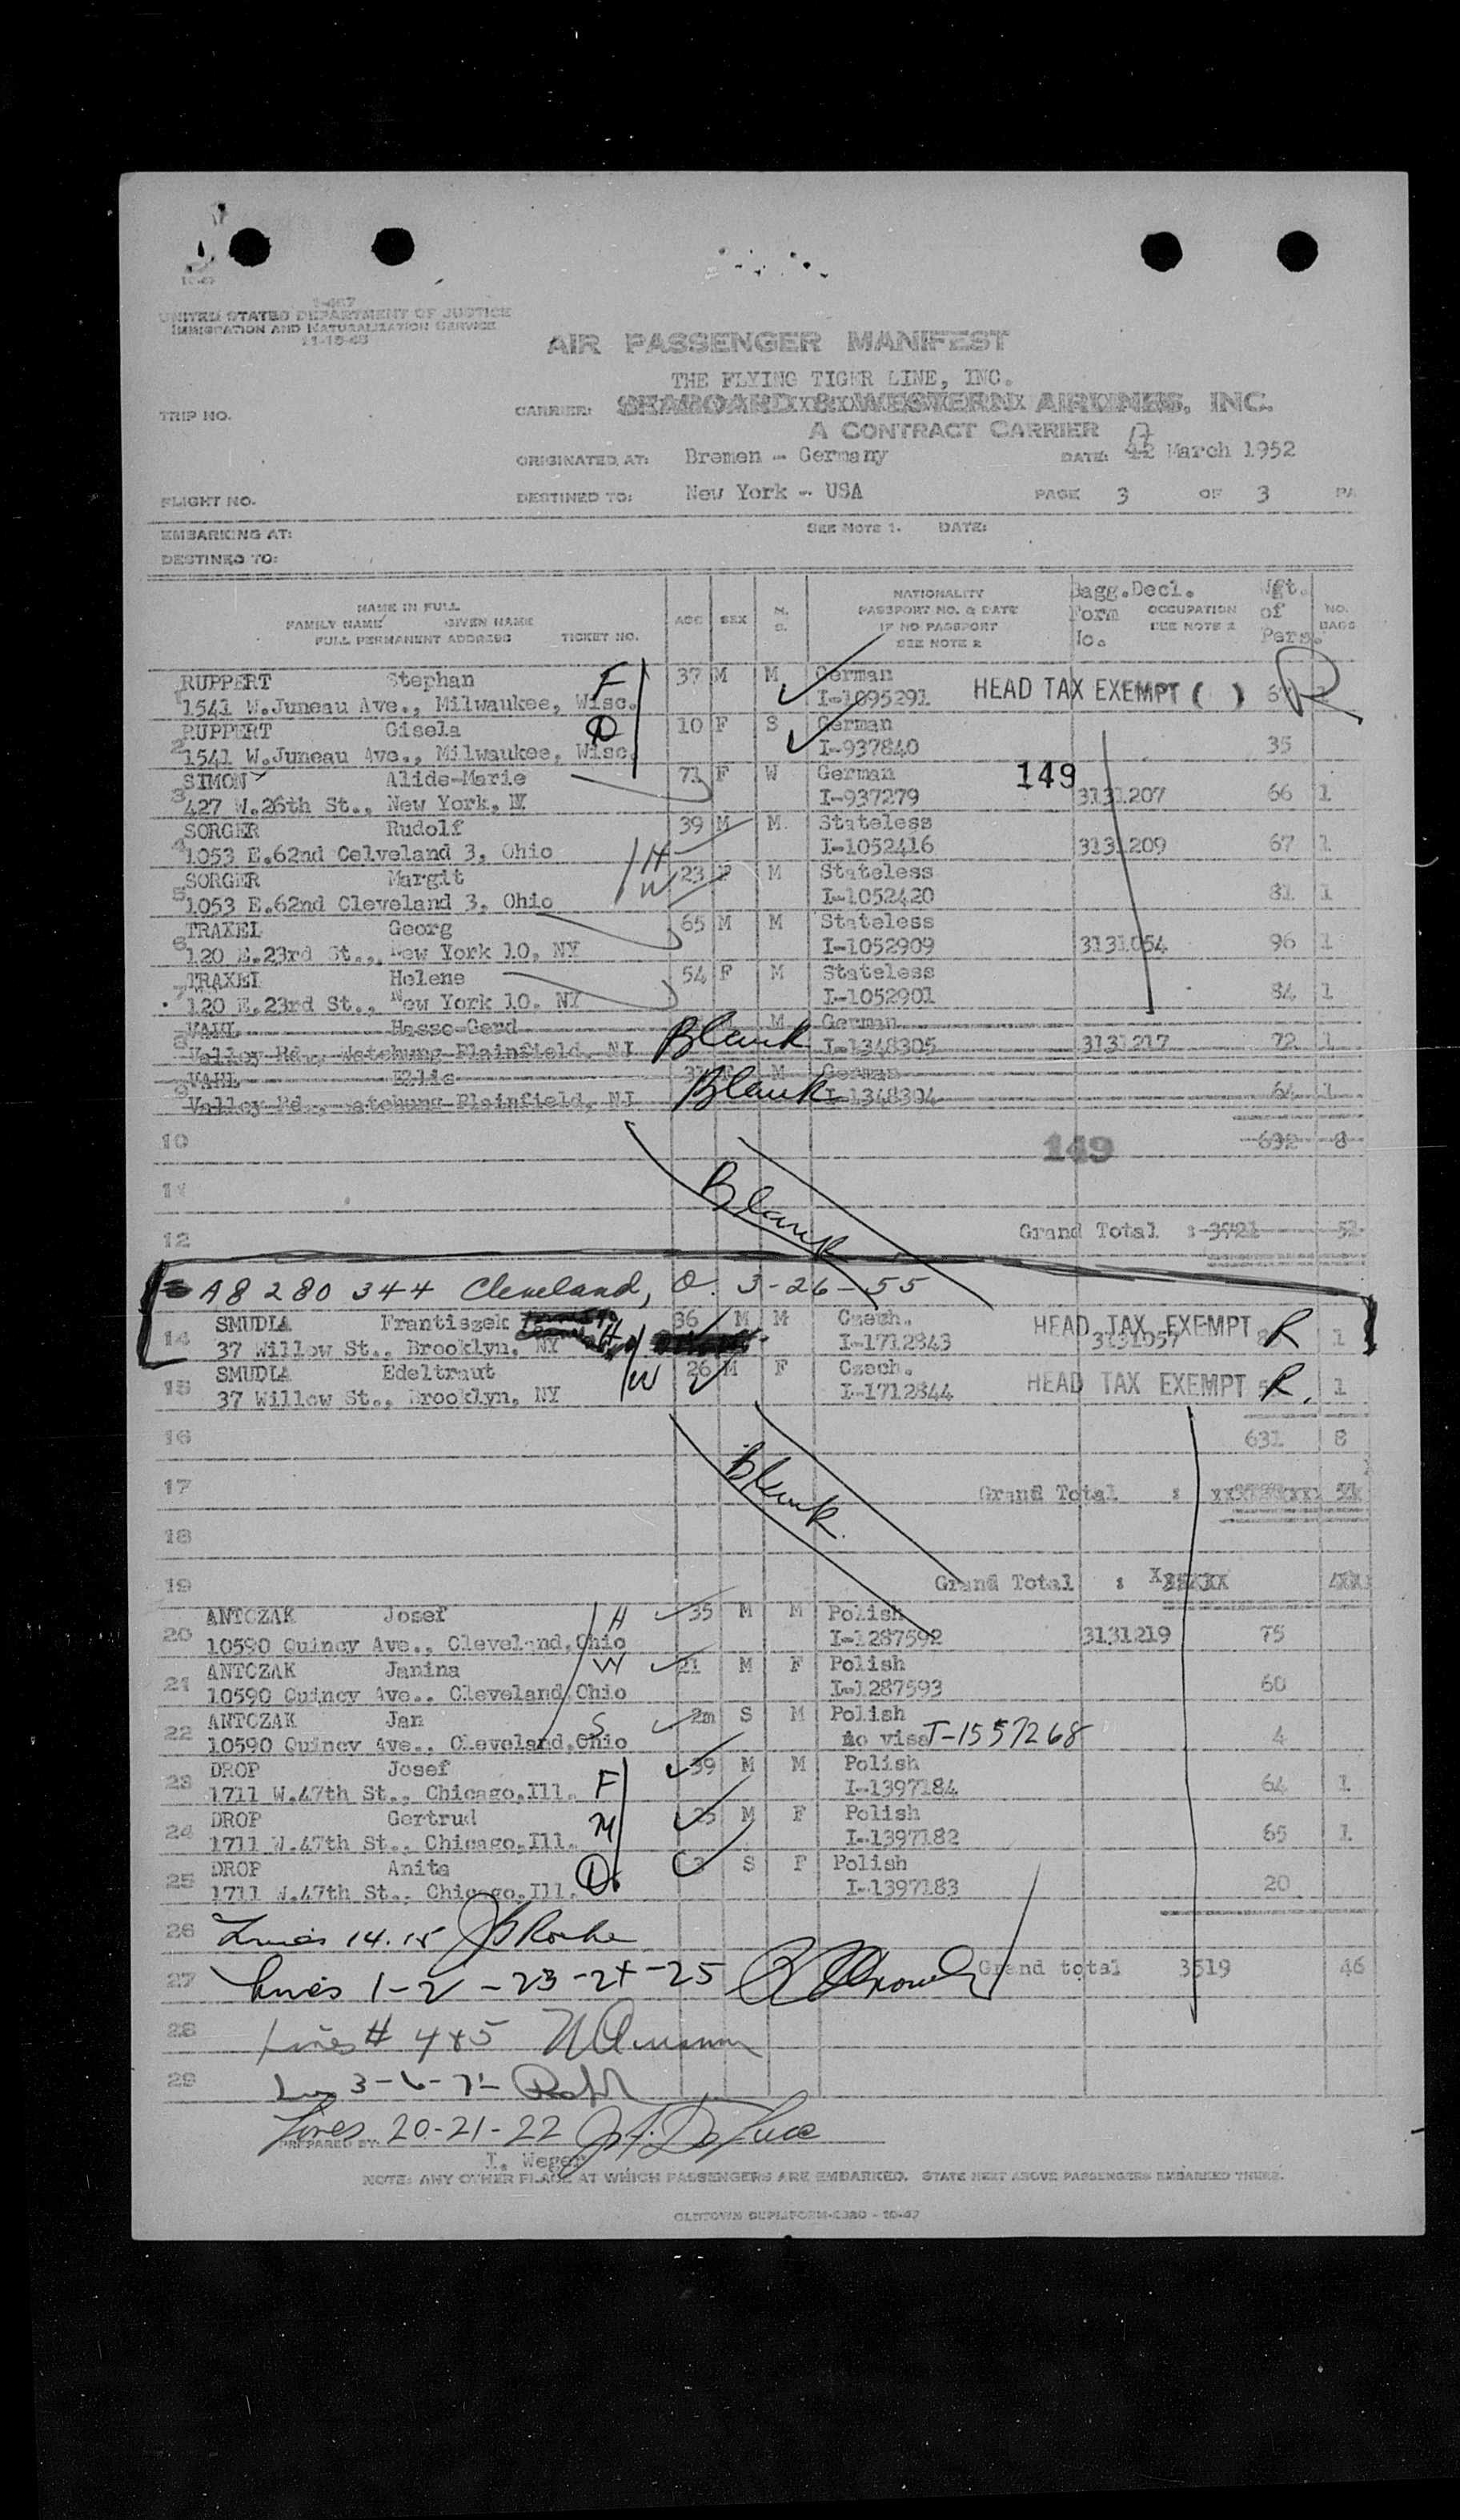 10-47
I-467
UNITED STATES DEPARTMENT OF JUSTICE
IMMIGRATION AND NATURALIZATION SERVICE
11-15-48
AIR PASSENGER MANIFEST
THE FLYING TIGER LINE, INC.
TRIP NO. CARRIER: SEABOARD & WESTERN AIRLINES, INC.
A CONTRACT CARRIER
ORIGINATED AT: Bremen - Germany DATE: 12 17 March 1952
FLIGHT NO. DESTINED TO: New York - USA PAGE 3 OF 3 PA
EMBARKING AT: SEE NOTE 1. DATE:
DESTINED TO:
NAME IN FULL
FAMILY NAME GIVEN NAME
FULL PERMANENT ADDRESS TICKET NO.
AGE SEX M. S.
NATIONALITY
PASSPORT NO. & DATE
IF NO PASSPORT
SEE NOTE 2
Bagg.Decl.
Form No.
OCCUPATION
SEE NOTE 2
Wgt. of Pers.
NO. BAGS
1 RUPPERT Stephan F 37 M M German
1541 W.Juneau Ave., Milwaukee, Wisc. I-1095291 HEAD TAX EXEMPT ( ) R
2 RUPPERT Gisela D 10 F S German
1541 W.Juneau Ave., Milwaukee, Wisc. I-937840 35
3 SIMON Alide-Marie 71 F W German 149
427 W.26th St., New York, NY I-937279 3131207 66 1
4 SORGER Rudolf 39 M M Stateless
1053 E.62nd Celveland 3, Ohio H I-1052416 3131209 67 1
5 SORGER Margit W 23 F M Stateless
1053 E.62nd Cleveland 3, Ohio I-1052420 81 1
6 TRAXEL Georg 65 M M Stateless
120 E.23rd St., New York 10, NY I-1052909 3131054 96 1
7 TRAXEL Helene 54 F M Stateless
120 E.23rd St., New York 10, NY I-1052901 84 1
8 VAHL Hasso-Gerd M German
Valley Rd., Watchung-Plainfield, NJ Blank I-1348305 3131217 72 1
9 VAHL Ellie M German
Valley Rd., Watchung-Plainfield, NJ Blank I-1348304 64 1
10 149 632 8
11 Blank
12 Grand Total : 3721 52
A8 280 344 Cleveland, O. 3-26-55
14 SMUDLA Frantiszek H 36 M M Czech. HEAD TAX EXEMPT R
37 Willow St., Brooklyn, NY I-1712843 3131057 1
15 SMUDLA Edeltraut W 26 M F Czech.
37 Willow St., Brooklyn, NY I-1712844 HEAD TAX EXEMPT R. 1
16 631 8
17 Blank. Grand Total :
18
19 Grand Total :
20 ANTCZAK Josef H 35 M M Polish
10590 Quincy Ave., Cleveland,Ohio I-1287592 3131219 75
21 ANTCZAK Janina W 21 M F Polish
10590 Quincy Ave., Cleveland,Ohio I-1287593 60
22 ANTCZAK Jan S 2m S M Polish
10590 Quincy Ave., Cleveland,Ohio no visa T-1557268 4
23 DROP Josef F 39 M M Polish
1711 W.47th St., Chicago,Ill. I-1397184 64 1
24 DROP Gertrud M 35 M F Polish
1711 W.47th St., Chicago,Ill. I-1397182 65 1
25 DROP Anita D. 3 S F Polish
1711 W.47th St., Chicago,Ill. I-1397183 20
26 Lines 14.15
27 Lines 1-2-23-24-25 Grand total 3519 46
28 Lines # 4+5
29 3-6-7
Lines 20-21-22
PREPARED BY:
I. Weger
NOTE: ANY OTHER PLACE AT WHICH PASSENGERS ARE EMBARKED. STATE NEXT ABOVE PASSENGERS EMBARKED THERE.